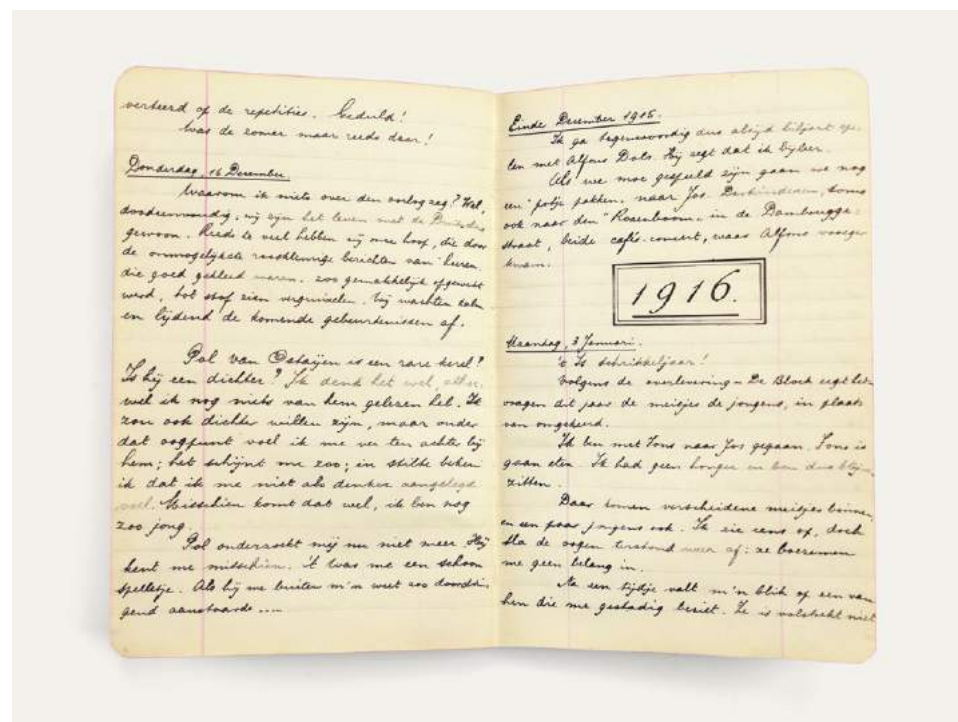 verteerd op de repetities. Geduld!
Was de zomer maar reeds daar!
Donderdag, 16 December.
Waarom ik niets over den oorlog zeg? Wel,
doodeenvoudig, wij zijn het leven met de
gewoon. Reeds te veel hebben wij onze hoop, die door
de onmogelijkste rasschleurige berichten van heeren
die goed gekleed waren, zoo gemakkelijk opgewekt
werd, tot stof zien vergruizelen. Wij wachten kalm
en lijdend de komende gebeurtenissen af.
Pol van Ostaijen is een rare kerel?
Is hij een dichter? Ik denk het wel, alhoe-
wel ik nog niets van hem gelezen heb. Ik
zou ook dichter willen zijn, maar onder
dat oogpunt voel ik me ver ten achter bij
hem; het schijnt me zoo; in stilte beken
ik dat ik me niet als denker aangelegd
voel. Misschien komt dat wel, ik ben nog
zoo jong.
Pol onderzoekt mij nu niet meer. Hij
kent me midschien. 't Was me een schoon
spelletje. Als hij me buiten m'n weet zoo doordrin-
gend aanstaarde .....
Einde December 1915.
Ik ga tegenwoordig dus altijd biljart spe-
len met Alfons Dols. Hij zegt dat ik bijleer.
Als we moe gespeeld zijn gaan we nog
een "potje pakken" naar Jos. Derkinderen, soms
ook naar den "Rozenboom" in de Dambrugge-
straat, beide cafés-concert, waar Alfons vroeger
kwam.
1916.
Maandag, 3 Januari.
't Is schrikkeljaar!
Volgens de overlevering - De Block zegt het -
vragen dit jaar de meisjes de jongens, in plaats
van omgekeerd.
Ik ben met Fons naar Jos gegaan. Fons is
gaan eten. Ik had geen honger en ben dus blijven
zitten.
Daar komen verscheidene meisjes binnen,
en een paar jongens ook. Ik zie eens op, doch
sla de oogen terstond weer af: ze boezemen
me geen belang in.
Na een tijdje valt m'n blik op een van
hen die me gestadig beziet. Ze is volstrekt niet